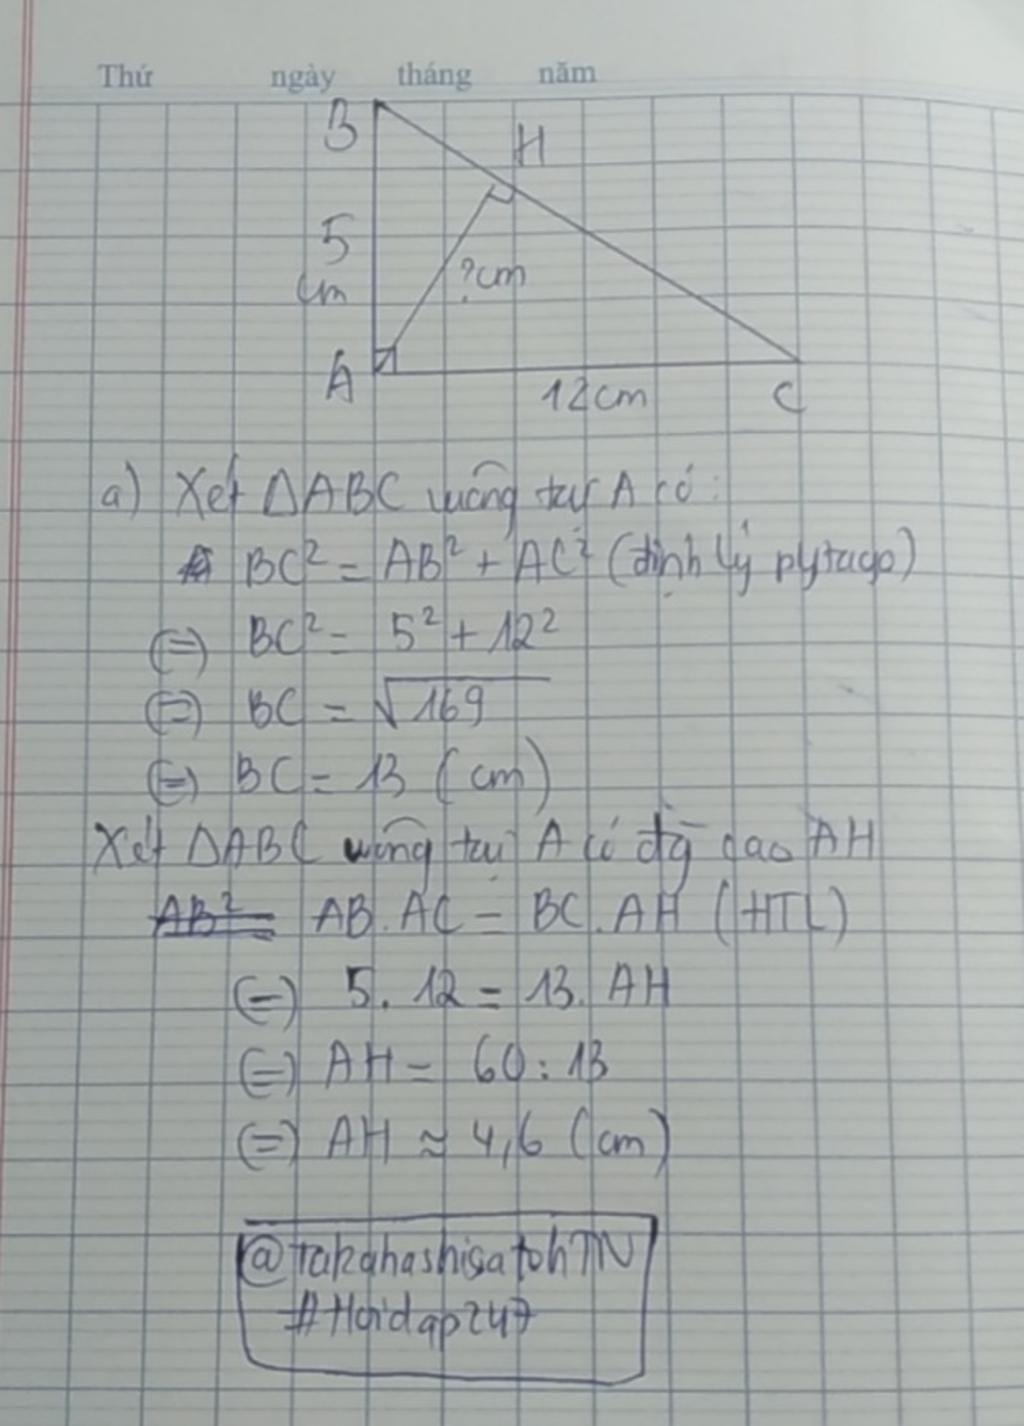 Thứ ngày tháng năm
B
H
5
cm
?cm
A
12cm
C
a) Xét ΔABC vuông tại A có:
BC² = AB² + AC² (định lý pytago)
(=) BC² = 5² + 12²
(=) BC = √169
(=) BC = 13 (cm)
Xét ΔABC vuông tại A có đg cao AH
AB² = AB.AC = BC.AH (HTL)
(=) 5.12 = 13.AH
(=) AH = 60:13
(=) AH ≈ 4,6 (cm)
@takahashisatohTN
#Hoidap247